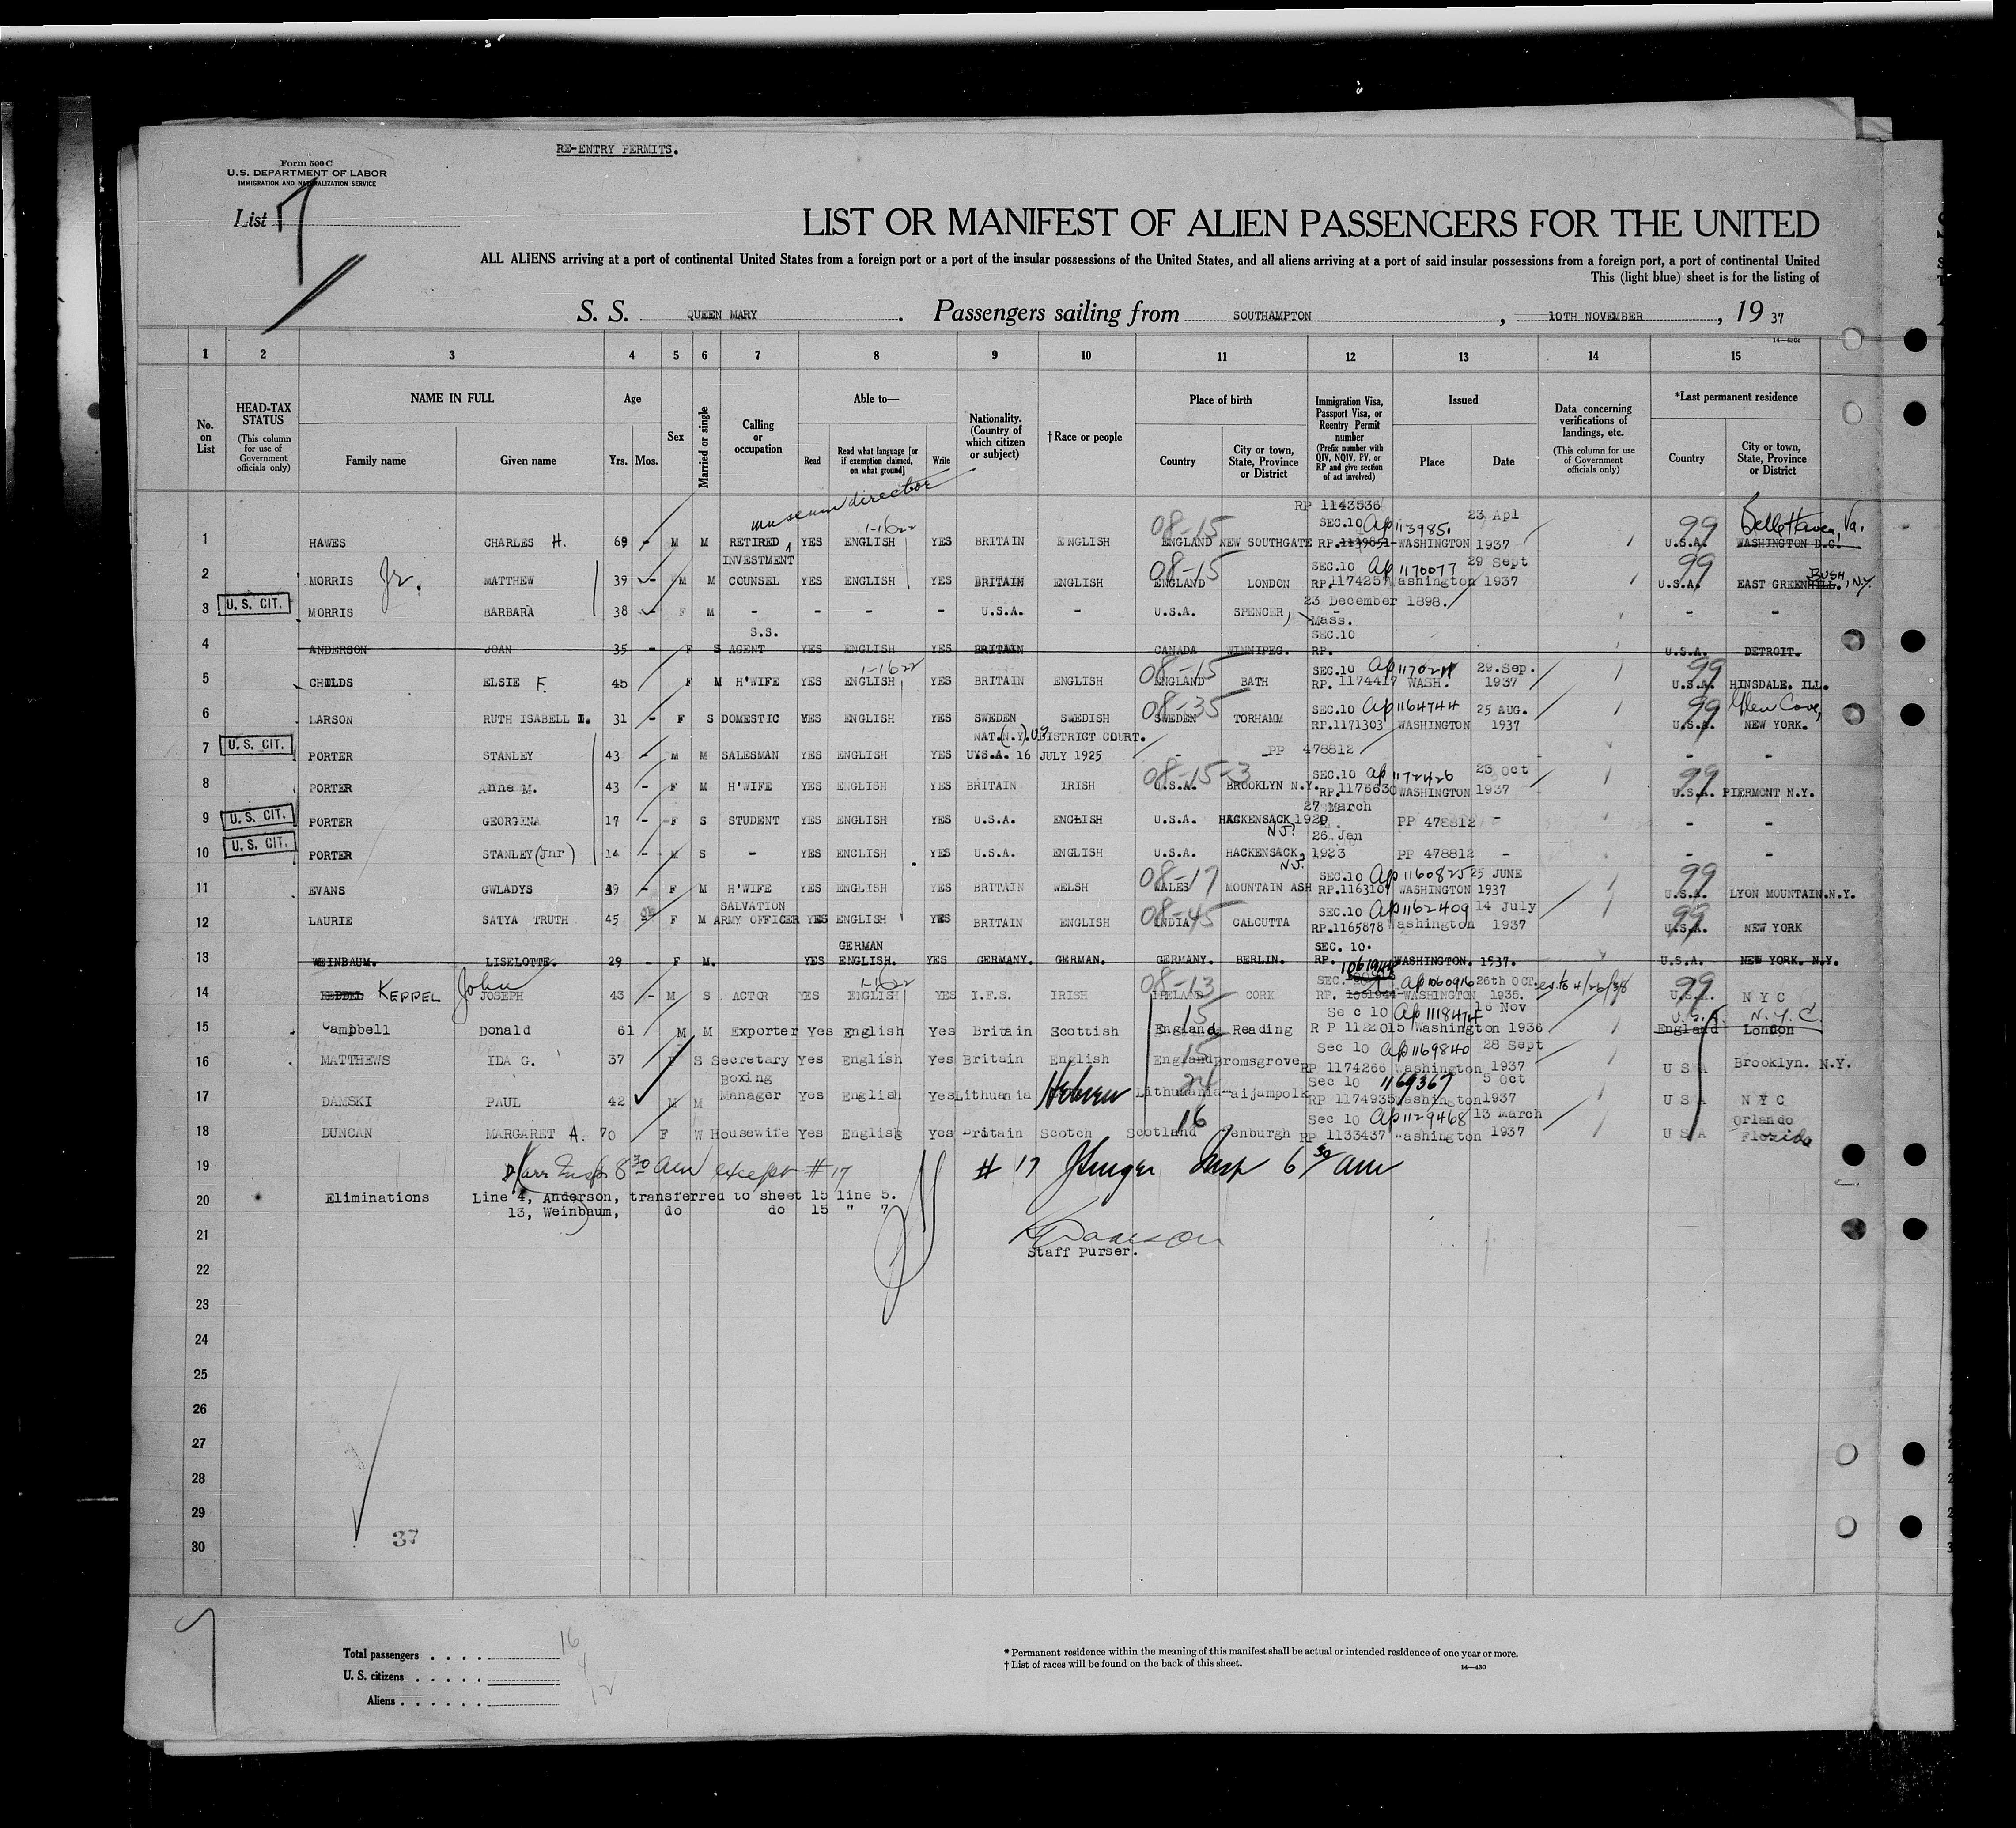 RE-ENTRY PERMITS.
Form 500 C
U.S. DEPARTMENT OF LABOR
IMMIGRATION AND NATURALIZATION SERVICE
List 7
LIST OR MANIFEST OF ALIEN PASSENGERS FOR THE UNITED
ALL ALIENS arriving at a port of continental United States from a foreign port or a port of the insular possessions of the United States, and all aliens arriving at a port of said insular possessions from a foreign port, a port of continental United
This (light blue) sheet is for the listing of
S. S. QUEEN MARY. Passengers sailing from SOUTHAMPTON, 10TH NOVEMBER, 19 37
1 2 3 4 5 6 7 8 9 10 11 12 13 14 15
No. on List
HEAD-TAX STATUS (This column for use of Government officials only)
NAME IN FULL Family name Given name
Age Yrs. Mos.
Sex
Married or single
Calling or occupation
Able to— Read Read what language [or if exemption claimed, on what ground] Write
Nationality. (Country of which citizen or subject)
† Race or people
Place of birth Country City or town, State, Province or District
Immigration Visa, Passport Visa, or Reentry Permit number (Prefix number with QIV, NQIV, PV, or RP and give section of act involved)
Issued Place Date
Data concerning verifications of landings, etc. (This column for use of Government officials only)
*Last permanent residence Country City or town, State, Province or District
museum director
RP 1143536
1-1622 08-15 SEC.10 Ap 113985 23 Apl 99 Belle Haven, Va.
1 HAWES CHARLES H. 69 - M M RETIRED YES ENGLISH YES BRITAIN ENGLISH ENGLAND NEW SOUTHGATE RP. WASHINGTON 1937 U.S.A. WASHINGTON D.C.
INVESTMENT 08-15 SEC.10 Ap 1170077 29 Sept 99
2 MORRIS Jr. MATTHEW 39 - M M COUNSEL YES ENGLISH YES BRITAIN ENGLISH ENGLAND LONDON RP.1174257 Washington 1937 U.S.A. EAST GREENBUSH, N.Y.
23 December 1898.
3 U. S. CIT. MORRIS BARBARA 38 - F M - - - - U.S.A. - U.S.A. SPENCER, Mass. - -
S.S. SEC.10
4 ANDERSON JOAN 35 - F S AGENT YES ENGLISH YES BRITAIN CANADA WINNIPEG. RP. U.S.A. DETROIT.
1-1622 08-15 SEC.10 Ap 29.Sep. 99
5 CHILDS ELSIE F. 45 F M H'WIFE YES ENGLISH YES BRITAIN ENGLISH ENGLAND BATH RP. 1174417 WASH. 1937 U.S.A. HINSDALE. ILL.
08-35 SEC.10 Ap 1164744 25 AUG. 99 Glen Cove,
6 LARSON RUTH ISABELL I. 31 - F S DOMESTIC YES ENGLISH YES SWEDEN SWEDISH SWEDEN TORHAMM RP.1171303 WASHINGTON 1937 U.S.A. NEW YORK.
NAT.(N.Y).US DISTRICT COURT.
7 U. S. CIT. PORTER STANLEY 43 - M M SALESMAN YES ENGLISH YES U.S.A. 16 JULY 1925 - PP 478812 - -
08-15-3 SEC.10 Ap 1172426 23 Oct 99
8 PORTER Anne M. 43 - F M H'WIFE YES ENGLISH YES BRITAIN IRISH U.S.A. BROOKLYN N.Y. RP.1176630 WASHINGTON 1937 U.S.A. PIERMONT N.Y.
27 March
9 U. S. CIT. PORTER GEORGINA 17 - F S STUDENT YES ENGLISH YES U.S.A. ENGLISH U.S.A. HACKENSACK N.J. 1920 PP 478812 - - -
26 Jan
10 U. S. CIT. PORTER STANLEY (Jnr) 14 - M S - YES ENGLISH YES U.S.A. ENGLISH U.S.A. HACKENSACK, N.J. 1923 PP 478812 - - -
08-17 SEC.10 Ap 1160825 25 JUNE 99
11 EVANS GWLADYS 39 - F M H'WIFE YES ENGLISH YES BRITAIN WELSH WALES MOUNTAIN ASH RP.116310 WASHINGTON 1937 U.S.A. LYON MOUNTAIN.N.Y.
SALVATION 08-45 SEC.10 Ap 1162409 14 July 99
12 LAURIE SATYA TRUTH 45 F M ARMY OFFICER YES ENGLISH YES BRITAIN ENGLISH INDIA CALCUTTA RP.1165878 Washington 1937 U.S.A. NEW YORK
GERMAN SEC. 10.
13 WEINBAUM. LISELOTTE. 29 - F M. YES ENGLISH. YES GERMANY. GERMAN. GERMANY. BERLIN. RP. WASHINGTON. 1937. U.S.A. NEW YORK. N.Y.
John 1-1622 08-13 SEC. 1061944 Ap 1060916 26th OCT. ex. to 4/26/38 99
14 KEPPEL JOSEPH 43 - M S ACTOR YES ENGLISH YES I.F.S. IRISH IRELAND CORK RP. 1061944 WASHINGTON 1935. U.S.A. N Y C
15 Sec 10 Ap 1118474 16 Nov U.S.A. N.Y.C.
15 Campbell Donald 61 M M Exporter Yes English Yes Britain Scottish England Reading R P 1122015 Washington 1936 England London
15 Sec 10 Ap 1169840 28 Sept
16 MATTHEWS IDA G. 37 F S Secretary Yes English Yes Britain English England Bromsgrove RP 1174266 Washington 1937 U S A Brooklyn. N.Y.
Boxing 24 Sec 10 1169367 5 Oct
17 DAMSKI PAUL 42 M M Manager Yes English Yes Lithuania Hebrew Lithuania aijampolk RP 1174935 Washington 1937 U S A N Y C
16 Sec 10 Ap 1129468 13 March Orlando
18 DUNCAN MARGARET A. 70 F W Housewife Yes English Yes Britain Scotch Scotland enburgh RP 1133437 Washington 1937 U S A Florida
19 Insp 8 30 am except #17 # 17 Insp 6 30 am
20 Eliminations Line 4, Anderson, transferred to sheet 15 line 5.
13, Weinbaum, do do 15 " 7
21
Staff Purser.
22
23
24
25
26
27
28
29
30
37
Total passengers . . . . 16
U. S. citizens . . . . . 4
Aliens . . . . . . 12
* Permanent residence within the meaning of this manifest shall be actual or intended residence of one year or more.
† List of races will be found on the back of this sheet.
14—430